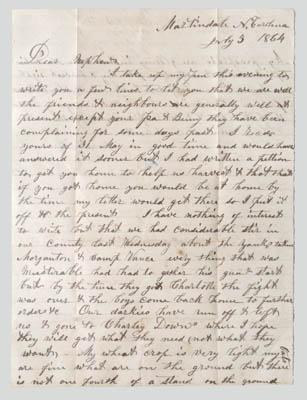 Martindale N. Carolina
July 3 1864
Dear Nephew
I take up my pen this evening to
write you a few lines to let you that we are well
the friends & neighbours are generally well at
present except your
complaining for some days past I
yours of May in good time and would have
answered it sooner but I had written a petition
to get you home to help us harvest & that
if you got home you would be at home by
the time my letter would get there so I put it
off to the present I have nothing of interest
to write but that we had considerable stir in
our County last Wednesday about the Yankes taking
Morganton & Camp Vance every thing that was
had had to gether his gun & start
but by the time they got Charlotte the fight
was over & the boys come back home to further
orders Our darkies have run off & left
us & gone to Charley Down where I hope
they will get what they need (not what they
want) My wheat crop is very light
are fine what are on the ground but there
is not one fourth of a stand on the ground